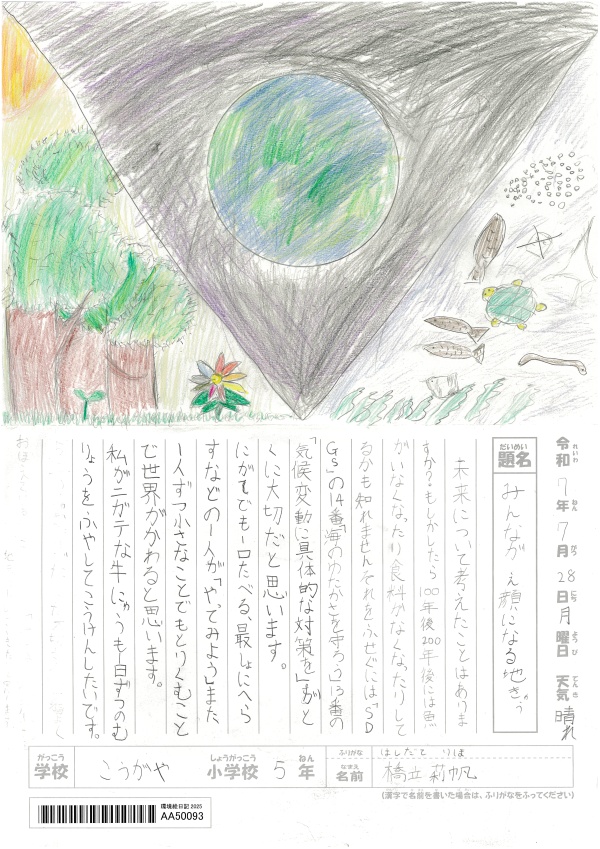 令和7年7月28日月曜日 天気 晴れ
れいわ ねん がつ にち ようび てんき
だいめい
題名 みんながえ顔になる地きゅう
未来について考えたことはありま
すか？もしかしたら100年後200年後には魚
がいなくなったり食料がなくなったりして
るかも知れませんそれをふせぐには「SD
GS」の14番「海のゆたかさを守ろう」13番の
「気候変動に具体的な対策を」がと
くに大切だと思います。
にがてでも一口たべる、最しょにへら
すなどの一人が「やってみよう」また、
一人ずつ小さなことでもとりくむこと
で世界がかわると思います。
私がニガテな牛にゅうも一日ずつのむ
りょうをふやしてこうけんしたいです。
がっこう しょうがっこう ねん
学校 こうがや 小学校 5 年
ふりがな はしだて りほ
なまえ
名前 橋立 莉帆
(漢字で名前を書いた場合は、ふりがなをふってください)
環境絵日記2025
AA50093